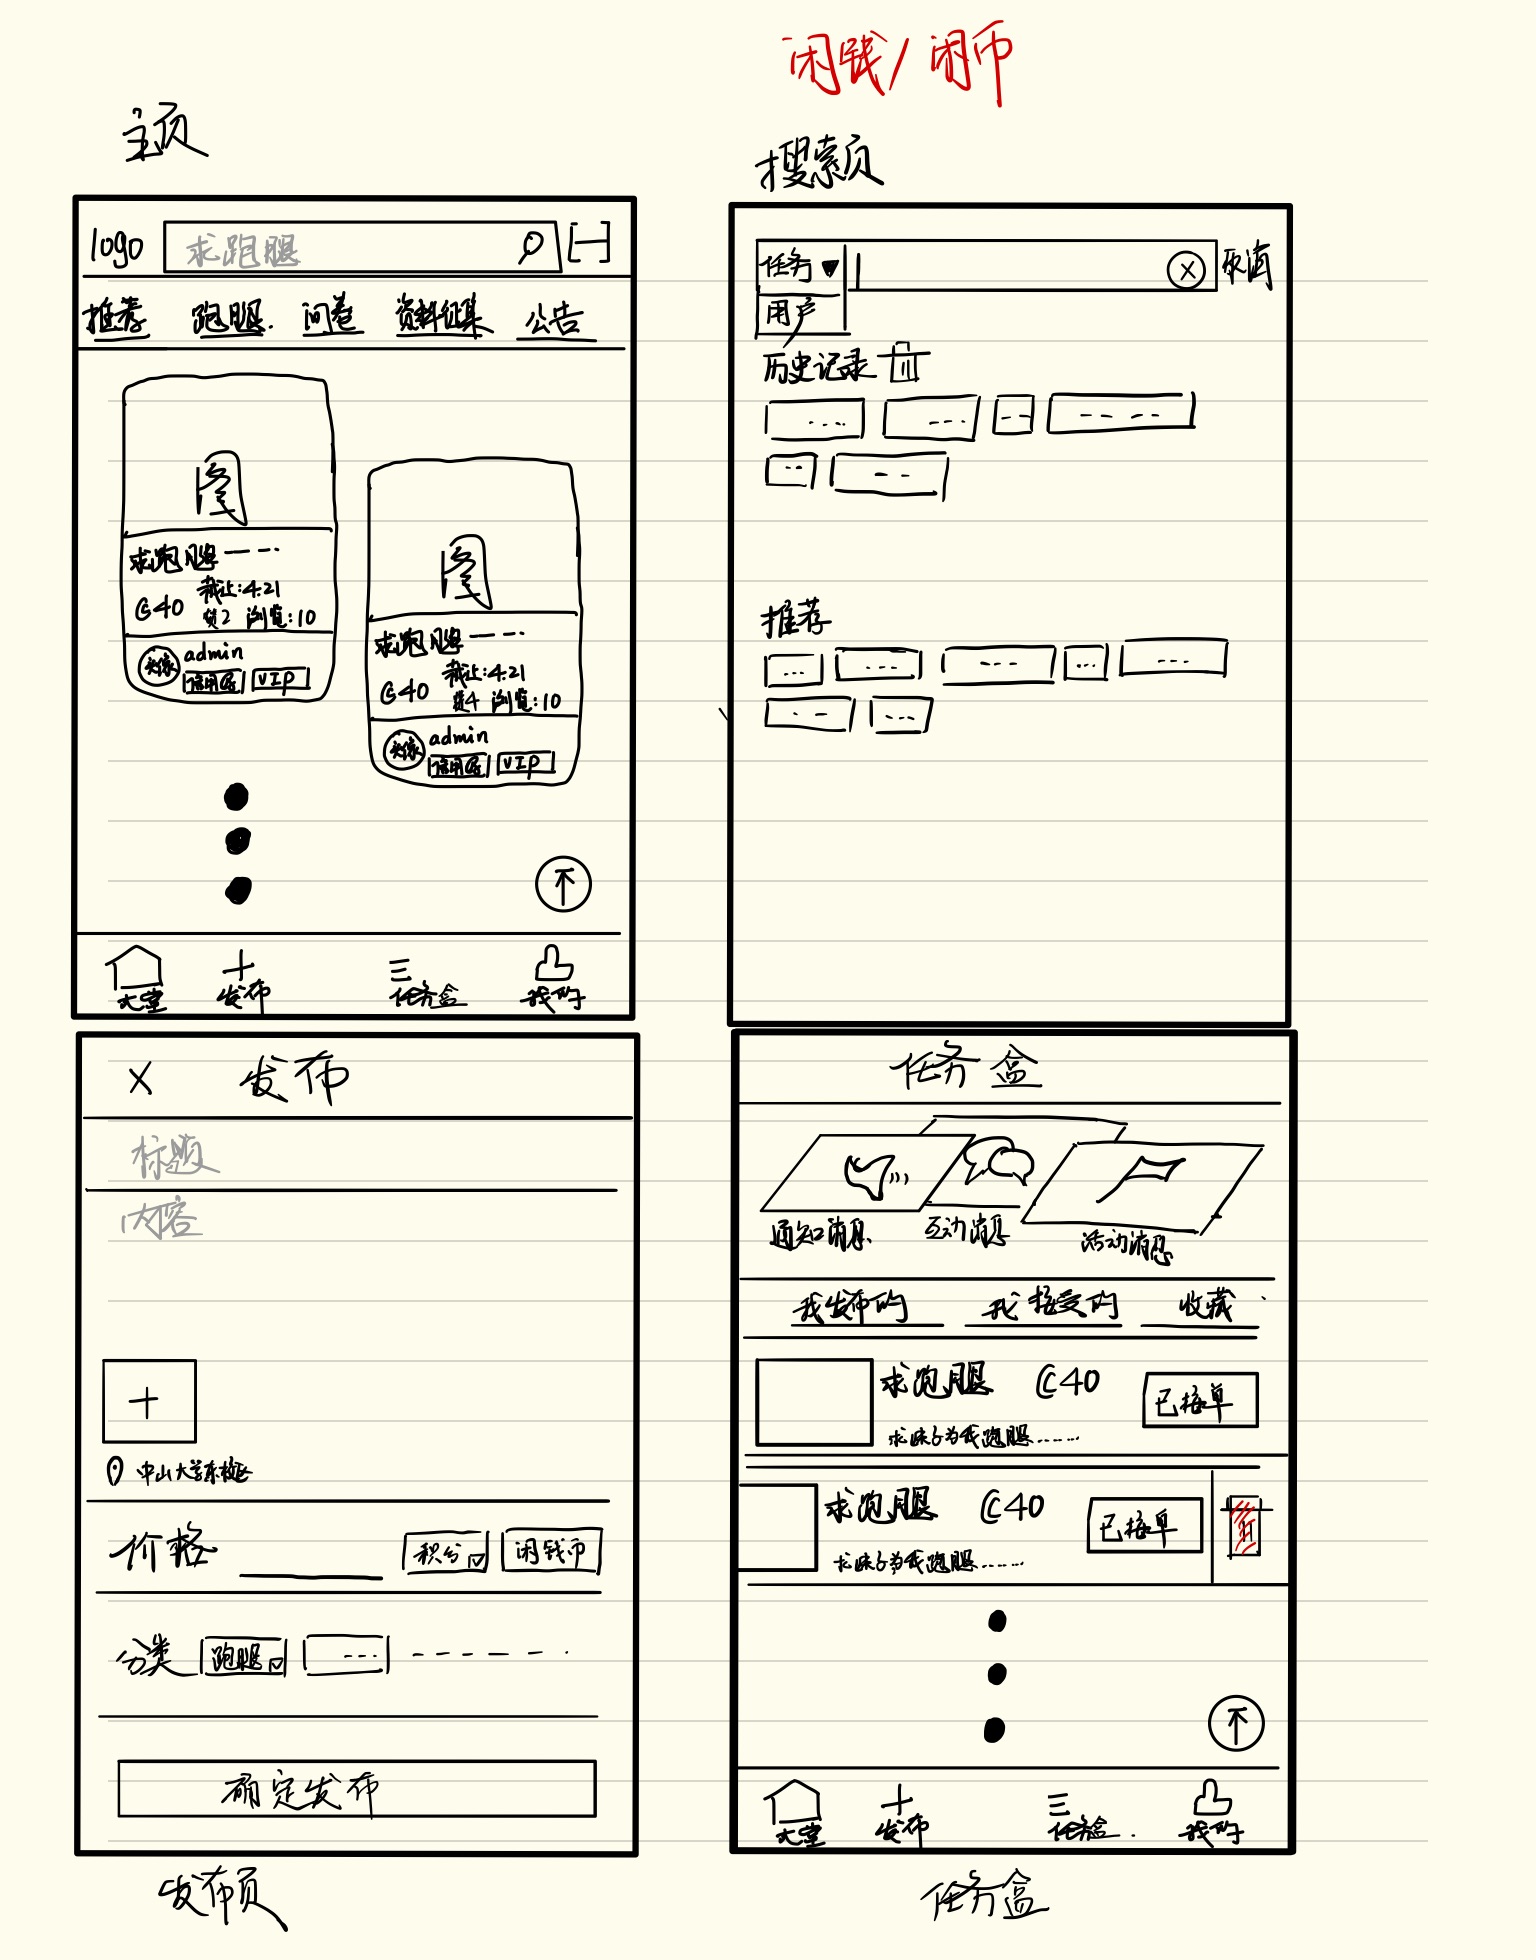 闲钱/闲币
主页
logo 求跑腿
推荐 跑腿 问卷 资料征集 公告
图
求跑腿
@40 截止:4.21
赞2 浏览:10
头像 admin
信用居 VIP
图
求跑腿
@40 截止:4.21
赞4 浏览:10
头像 admin
信用居 VIP
大堂 发布 任务盒 我的
搜索页
任务 取消
用户
历史记录
推荐
X 发布
标题
内容
+
中山大学东校区
价格 积分 闲钱币
分类 跑腿
确定发布
发布页
任务盒
通知消息 互动消息 活动消息
我发布的 我接受的 收藏
求跑腿 @40 已接单
求妹子为我跑腿......
求跑腿 @40 已接单
求妹子为我跑腿......
大堂 发布 任务盒 我的
任务盒